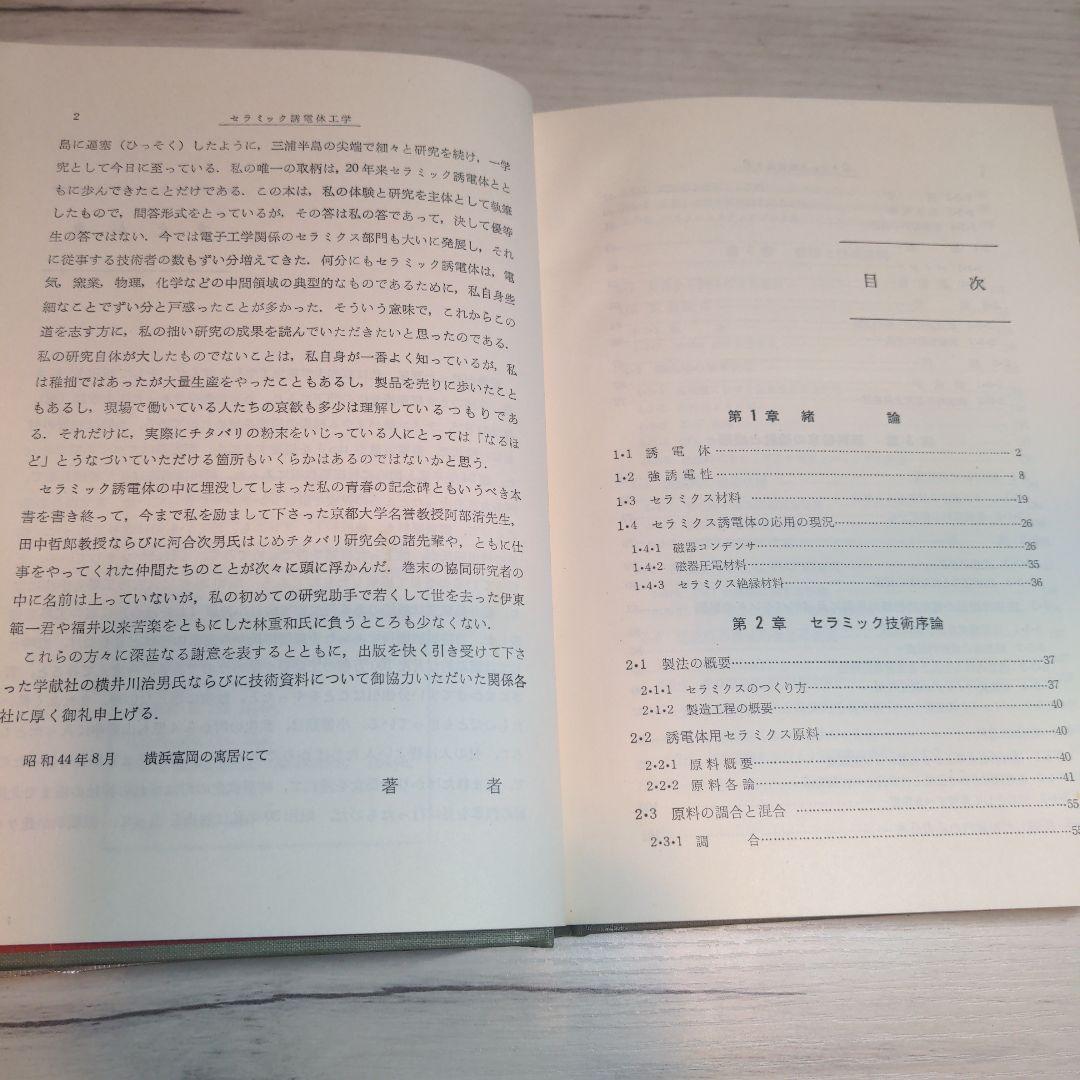 2
セラミック誘電体工学
島に逼塞（ひっそく）したように，三浦半島の尖端で細々と研究を続け，一学
究として今日に至っている．私の唯一の取柄は，20年来セラミック誘電体とと
もに歩んできたことだけである．この本は，私の体験と研究を主体として執筆
したもので，問答形式をとっているが，その答は私の答であって，決して優等
生の答ではない．今では電子工学関係のセラミクス部門も大いに発展し，それ
に従事する技術者の数もずい分増えてきた．何分にもセラミック誘電体は，電
気，窯業，物理，化学などの中間領域の典型的なものであるために，私自身些
細なことでずい分と戸惑ったことが多かった．そういう意味で，これからこの
道を志す方に，私の拙い研究の成果を読んでいただきたいと思ったのである．
私の研究自体が大したものでないことは，私自身が一番よく知っているが，私
は稚拙ではあったが大量生産をやったこともあるし，製品を売りに歩いたこと
もあるし，現場で働いている人たちの哀歓も多少は理解しているつもりであ
る．それだけに，実際にチタバリの粉末をいじっている人にとっては「なるほ
ど」とうなづいていただける箇所もいくらかはあるのではないかと思う．
セラミック誘電体の中に埋没してしまった私の青春の記念碑ともいうべき本
書を書き終って，今まで私を励まして下さった京都大学名誉教授阿部清先生，
田中哲郎教授ならびに河合次男氏はじめチタバリ研究会の諸先輩や，ともに仕
事をやってくれた仲間たちのことが次々に頭に浮かんだ．巻末の協同研究者の
中に名前は上っていないが，私の初めての研究助手で若くして世を去った伊東
範一君や福井以来苦楽をともにした林重和氏に負うところも少なくない．
これらの方々に深甚なる謝意を表するとともに，出版を快く引き受けて下さ
った学献社の横井川治男氏ならびに技術資料について御協力いただいた関係各
社に厚く御礼申上げる．
昭和44年8月　横浜富岡の寓居にて
著　者
目　次
第1章 緒　論
1・1 誘電体……2
1・2 強誘電性……8
1・3 セラミクス材料……19
1・4 セラミクス誘電体の応用の現況……26
1・4・1 磁器コンデンサ……26
1・4・2 磁器圧電材料……35
1・4・3 セラミクス絶縁材料……36
第2章 セラミック技術序論
2・1 製法の概要……37
2・1・1 セラミクスのつくり方……37
2・1・2 製造工程の概要……40
2・2 誘電体用セラミクス原料……40
2・2・1 原料概要……40
2・2・2 原料各論……41
2・3 原料の調合と混合……55
2・3・1 調　合……55